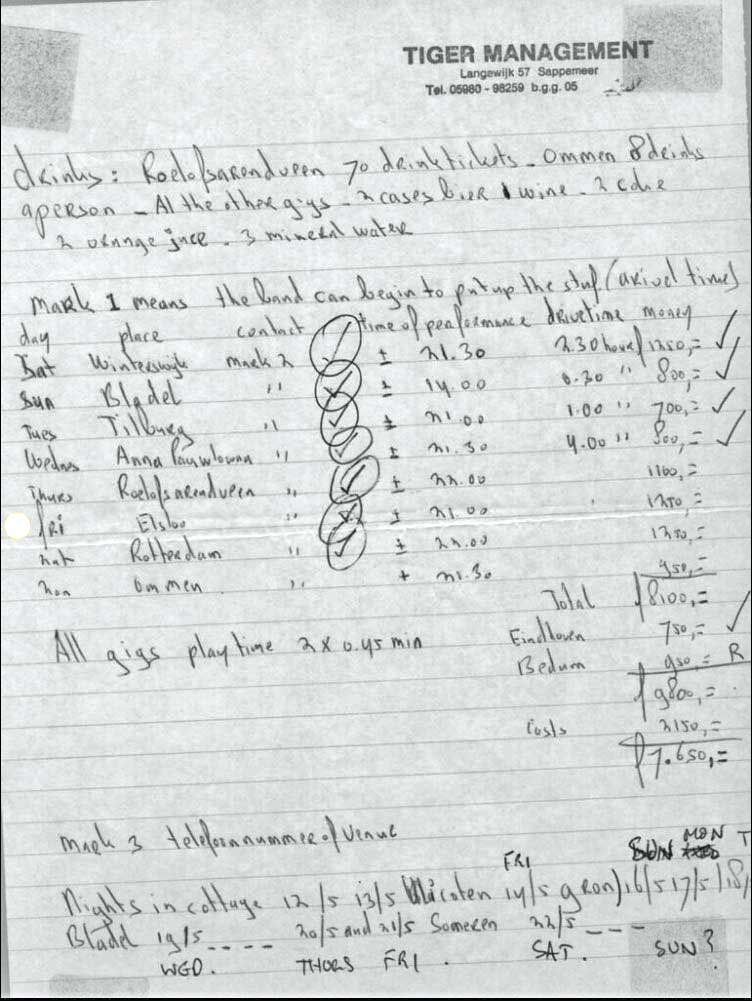 TIGER MANAGEMENT
Langewijk 57 Sappemeer
Tel. 05980 - 98259 b.g.g. 05
drinks: Roelofsarendveen 70 drinktickets - Ommen 8 drinks
a person - At the other gigs - 2 cases bier 1 wine - 2 coke
2 orange juce - 3 mineral water
Mark 1 means the band can begin to put up the stuf (arivel time)
day place contact time of performance drivetime money
Sat Winterswijk mark 2 ✓ ± 21.30 2.30 hour 1250,= ✓
Sun Bladel " ✓ ± 14.00 0.30 " 800,= ✓
Tues Tilburg " ✓ ± 21.00 1.00 " 700,= ✓
Wednes Anna Pauwlowna " ✓ ± 21.30 4.00 " 800,= ✓
Thurs Roelofsarendveen " ✓ ± 22.00 1100,=
fri Elsloo " ✓ ± 21.00 1250,=
zat Rotterdam " ✓ ± 22.00 1250,=
zon Ommen " + 21.30 950,=
Total 8100,=
All gigs play time 2 x 0.45 min
Eindhoven 750,= ✓
Bedum 950,= R
9800,=
Costs 2150,=
7.650,=
Mark 3 telefoonnummer of Venue
FRI SUN MON T
Nights in cottage 12/5 13/5 14/5 gron) 16/5 17/5 18/
Bladel 19/5 .... 20/5 and 21/5 Someren 22/5 ---
WED. THURS FRI. SAT. SUN?